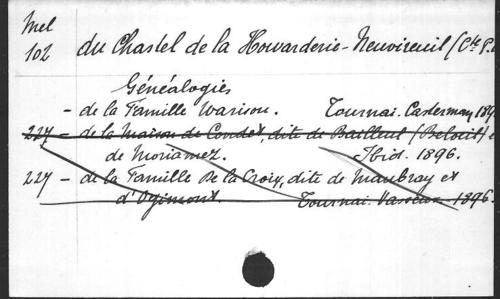 Mel
102
du Chastel de la Howarderie-Neuvireuil (Cte P.
Généalogies
- de la Famille Warison. Tournai. Casterman 189
227 - de la Maison de Condet, dite de Bailleul (Beloeil) e
de Moriamez. Ibid. 1896.
227 - de la Famille De la Croix, dite de Maubray et
d'Ogimont. Tournai. Vasseur 1896.